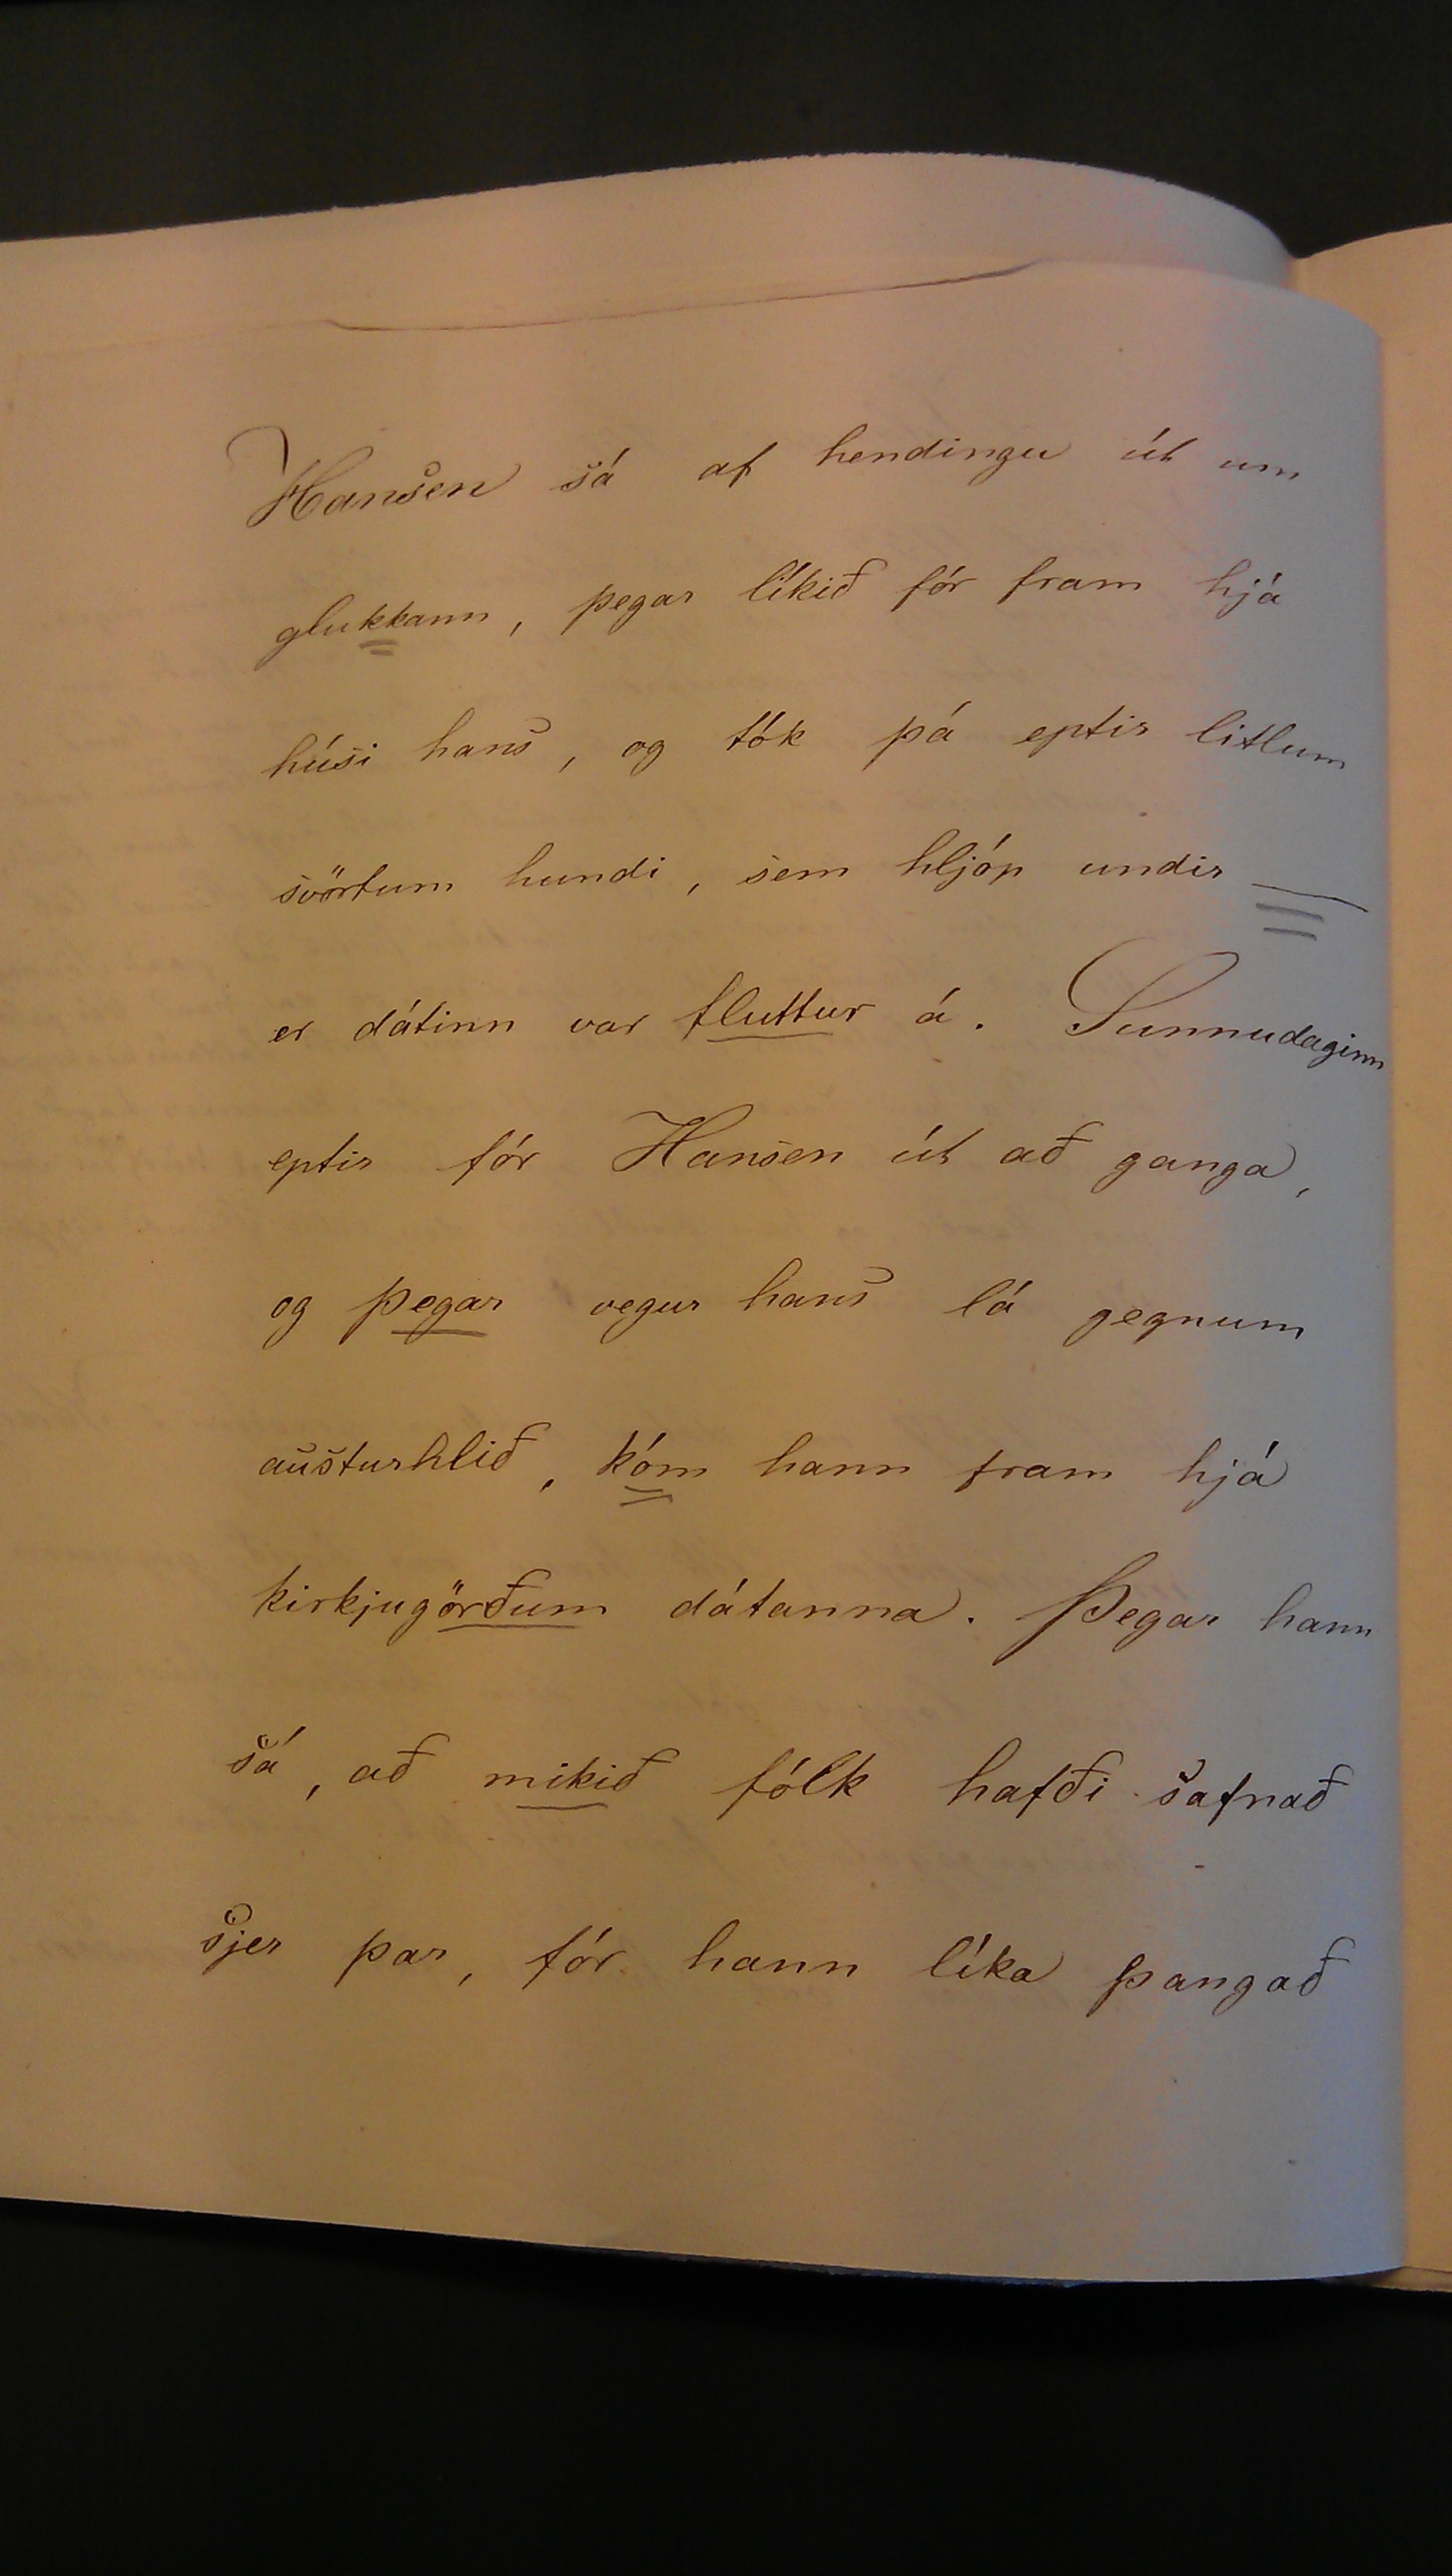 Hansen sá af hendingu út um
glukkann, þegar líkið fór fram hjá
húsi hans, og tók þá eptir litlum
svörtum hundi, sem hljóp undir —
er dátinn var fluttur á. Sunnudaginn
eptir fór Hansen út að ganga,
og þegar vegur hans lá gegnum
austurhlið, kóm hann fram hjá
kirkjugörðum dátanna. Þegar hann
sá, að mikið fólk hafði safnað
sjer þar, fór hann líka þangað